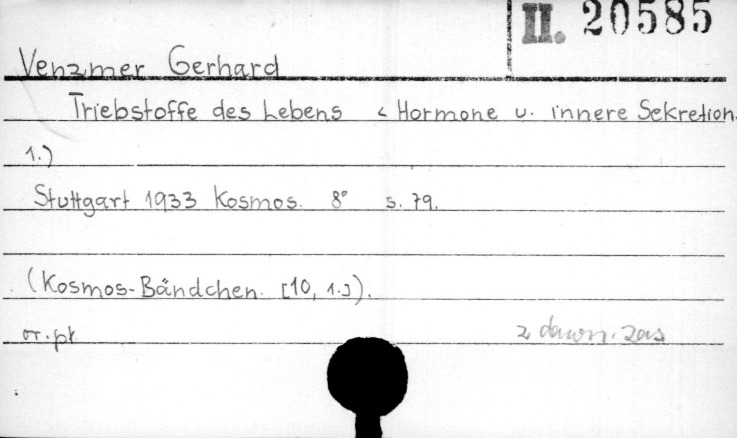 II. 20585
Venzmer Gerhard
Triebstoffe des Lebens < Hormone u. innere Sekretion.
1.)
Stuttgart 1933 Kosmos. 8° s. 79.
(Kosmos-Bändchen. [10, 1.]).
or. pł.
z dawn. zas